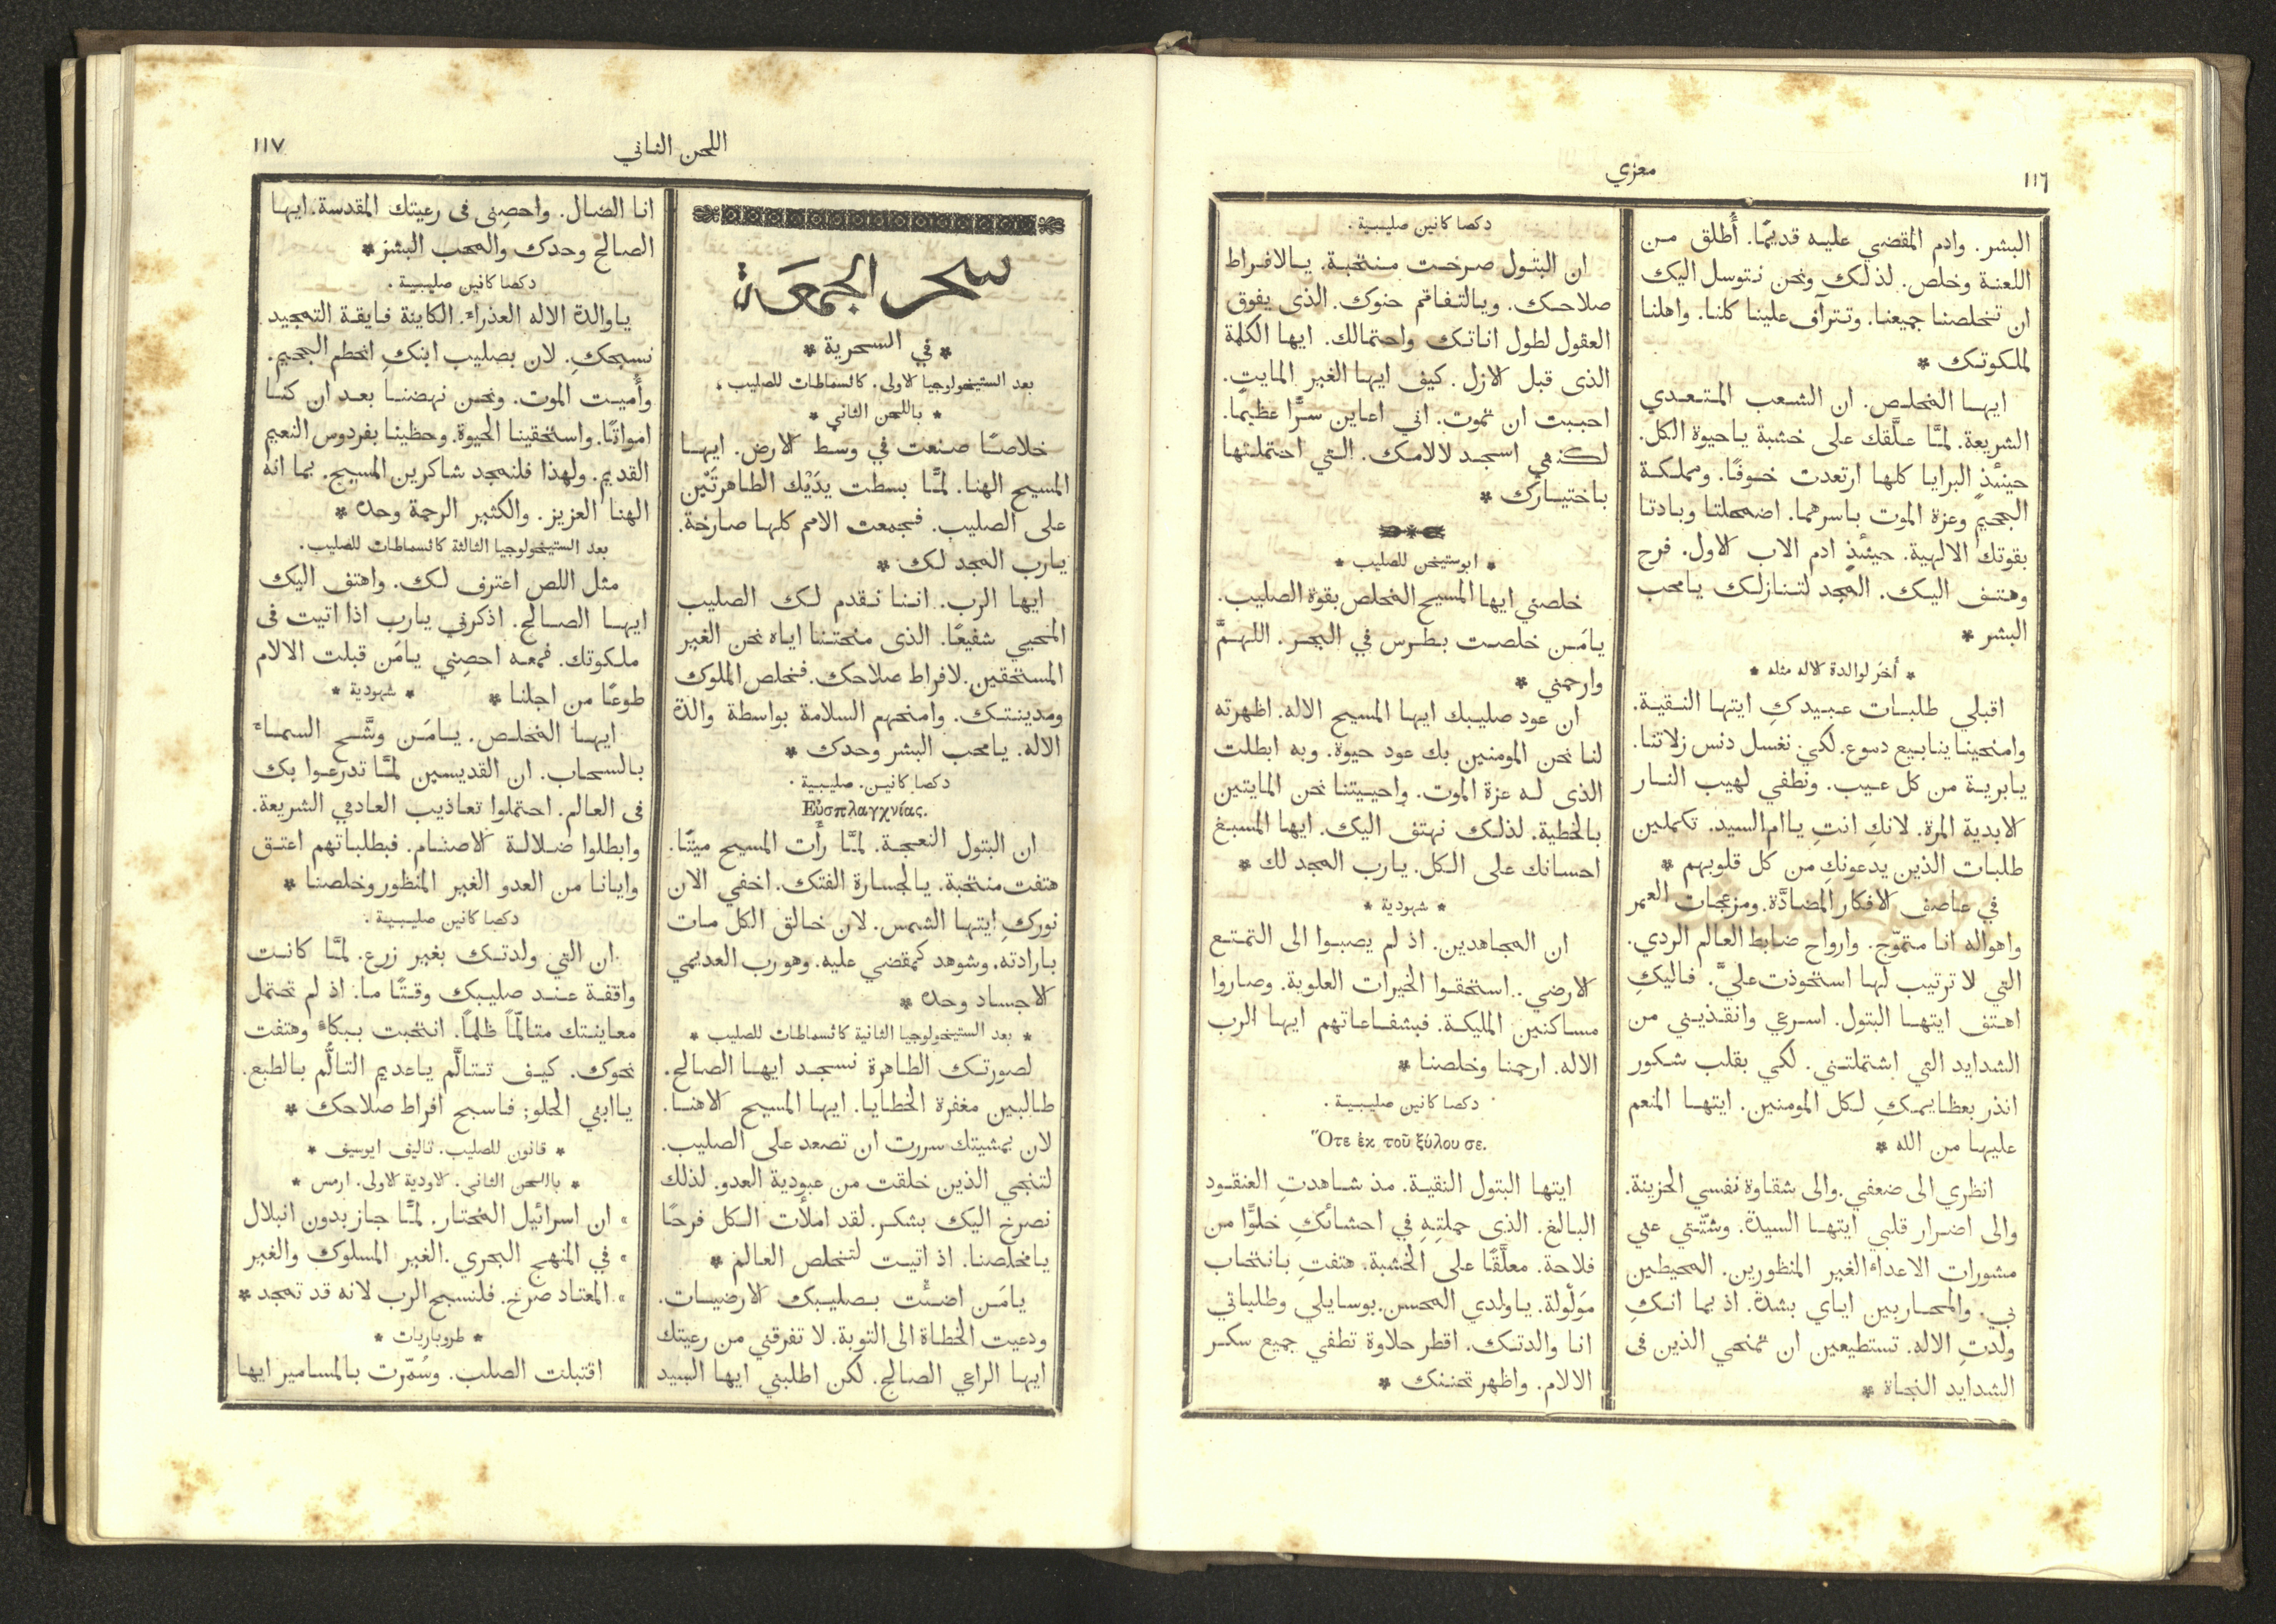 ١١٦
معزي
البشر. وادم المقضي عليه قديمًا. أُطلق من
اللعنة وخلص. لذلك ونحن نتوسل اليك
ان تخلصنا جميعنا. وتترآف علينا كلنا. واهلنا
لملكوتك *
ايها المخلص. ان الشعب المتعدي
الشريعة. لمَّا علَّقك على خشبة ياحيوة الكل.
حينئذٍ البرايا كلها ارتعدت خوفًا. ومملكة
الجحيم وعزة الموت باسرهما. اضمحلتا وبادتا
بقوتك الالهية. حينئذٍ ادم الاب الاول. فرح
وهتف اليك. المجد لتنازلك يامحب
البشر *
* أخر لوالدة الاله مثله *
اقبلي طلبات عبيدكِ ايتها النقية.
وامنحينا ينابيع دموع. لكي نغسل دنس زلاتنا.
يابرية من كل عيب. ونطفي لهيب النار
الابدية المرة. لانكِ انتِ ياام السيد. تكملين
طلبات الذين يدعونكِ من كل قلوبهم *
في عاصف الافكار المضادَّة. ومزعجات العمر
واهواله انا متموّج. وارواح ضابط العالم الردي.
التي لا ترتيب لها استحوذت عليَّ. فاليكِ
اهتف ايتها البتول. اسرعي وانقذيني من
الشدايد التي اشتملتني. لكي بقلب شكور
انذر بعظايمكِ لكل المومنين. ايتها المنعم
عليها من الله *
انظري الى ضعفي. والى شقاوة نفسي الحزينة.
والى اضرار قلبي ايتها السيدة. وشتّتي عني
مشورات الاعداء الغير المنظورين. المحيطين
بي. والمحاربين اياي بشدة. اذ بما انكِ
ولدتِ الاله. تستطيعين ان تمنحي الذين في
الشدايد النجاة *
دكصا كانين صليبية.
ان البتول صرخت منتحبة. يالافراط
صلاحك. ويالتفاقم حنوك. الذى يفوق
العقول لطول اناتك واحتمالك. ايها الكلمة
الذى قبل الازل. كيف ايها الغير المايت.
احببت ان تموت. اني اعاين سرًّا عظيمًا.
لكنني اسجد لالامك. التي احتملتها
باختيارك *
* ابوستيخن للصليب *
خلصني ايها المسيح المخلص بقوة الصليب.
يامَن خلصت بطرس في البحر. اللهمَّ
وارحمني *
ان عود صليبك ايها المسيح الاله. اظهرته
لنا نحن المومنين بك عود حيوة. وبه ابطلت
الذى له عزة الموت. واحييتنا نحن المايتين
بالخطية. لذلك نهتف اليك. ايها المسبغ
احسانك على الكل. يارب المجد لك *
* شهودية *
ان المجاهدين. اذ لم يصبوا الى التمتع
الارضي. استحقوا الخيرات العلوية. وصاروا
مساكنين المليكة. فبشفاعاتهم ايها الرب
الاله. ارحمنا وخلصنا *
دكصا كانين صليبية.
Ὅτε ἐκ τοῦ ξύλου σε.
ايتها البتول النقية. مذ شاهدتِ العنقود
البالغ. الذى حملتِهِ في احشائكِ خلوًّا من
فلاحة. معلَّقًا على الخشبة. هتفتِ بانتحاب
مَولّولة. ياولدي المحسن. بوسايلي وطلباتي
انا والدتك. اقطر حلاوة تطفي جميع سكر
الالام. واظهر تحننك *
اللحن الثاني
١١٧
سحر الجمعَة
* في السحرية *
بعد الستيخولوجيا الاولى. كاتسماطات للصليب.
* باللحن الثاني *
خلاصًا صنعت في وسط الارض. ايها
المسيح الهنا. لمَّا بسطت يدَيْك الطاهرتَيْن
على الصليب. فجمعت الامم كلها صارخة.
يارب المجد لك *
ايها الرب. اننا نقدم لك الصليب
المحيي شفيعًا. الذى منحتنا اياه نحن الغير
المستحقين. لافراط صلاحك. فخلص الملوك
ومدينتك. وامنحهم السلامة بواسطة والدة
الاله. يامحب البشر وحدك *
دكصا كانين. صليبية.
Εὐσπλαγχνίας.
ان البتول النعجة. لمَّا رأت المسيح ميتًا.
هتفت منتحبة. يالجسارة الفتك. اخفي الان
نوركِ ايتها الشمس. لان خالق الكل مات
بارادته. وشوهد كمقضي عليه. وهو رب العديمي
الاجساد وحده *
* بعد الستيخولوجيا الثانية كاتسماطات للصليب *
لصورتك الطاهرة نسجد ايها الصالح.
طالبين مغفرة الخطايا. ايها المسيح الاهنا.
لان بمشيتك سررت ان تصعد على الصليب.
لتنجي الذين خلقت من عبودية العدو. لذلك
نصرخ اليك بشكر. لقد املأت الكل فرحًا
يامخلصنا. اذ اتيت لتخلص العالم *
يامَن اضئت بصليبك الارضيات.
ودعيت الخطاة الى التوبة. لا تفرقني من رعيتك
ايها الراعي الصالح. لكن اطلبني ايها السيد
انا الضال. واحصِني فى رعيتك المقدسة. ايها
الصالح وحدك والمحب البشر *
دكصا كانين صليبية.
ياوالدة الاله العذراء. الكاينة فايقة التمجيد
نسبحكِ. لان بصليب ابنكِ انحطم الجحيم.
وأُميت الموت. ونحن نهضنا بعد ان كنا
امواتًا. واستحقينا الحيوة. وحظينا بفردوس النعيم
القديم. ولهذا فلنمجد شاكرين المسيح. بما انه
الهنا العزيز. والكثير الرحمة وحده *
بعد الستيخولوجيا الثالثة كاتسماطات للصليب.
مثل اللص اعترف لك. واهتف اليك
ايها الصالح. اذكرني يارب اذا اتيت فى
ملكوتك. فمعه احصِني يامَن قبلت الالام
طوعًا من اجلنا * * شهودية *
ايها المخلص. يامَن وشَّح السماء
بالسحاب. ان القديسين لمَّا تدرعوا بك
فى العالم. احتملوا تعاذيب العادمي الشريعة.
وابطلوا ضلالة الاصنام. فبطلباتهم اعتق
وايانا من العدو الغير المنظور وخلصنا *
دكصا كانين صليبية.
ان التي ولدتك بغير زرع. لمَّا كانت
واقفة عند صليبك وقتًا ما. اذ لم تحتمل
معاينتك متالّمًا ظلمًا. انتحبت ببكاء وهتفت
نحوك. كيف تتالَّم ياعديم التالُّم بالطبع.
ياابني الحلو: فاسبح افراط صلاحك *
* قانون للصليب. تاليف ايوسيف *
* باللحن الثاني. الاودية الاولى. ارمس *
» ان اسرائيل المختار. لمَّا جاز بدون ابتلال
» في المنهج البحري. الغير المسلوك والغير
» المعتاد صرخ. فلنسبح الرب لانه قد تمجد *
* طروباريات *
اقتبلت الصلب. وسُمّرت بالمسامير ايها